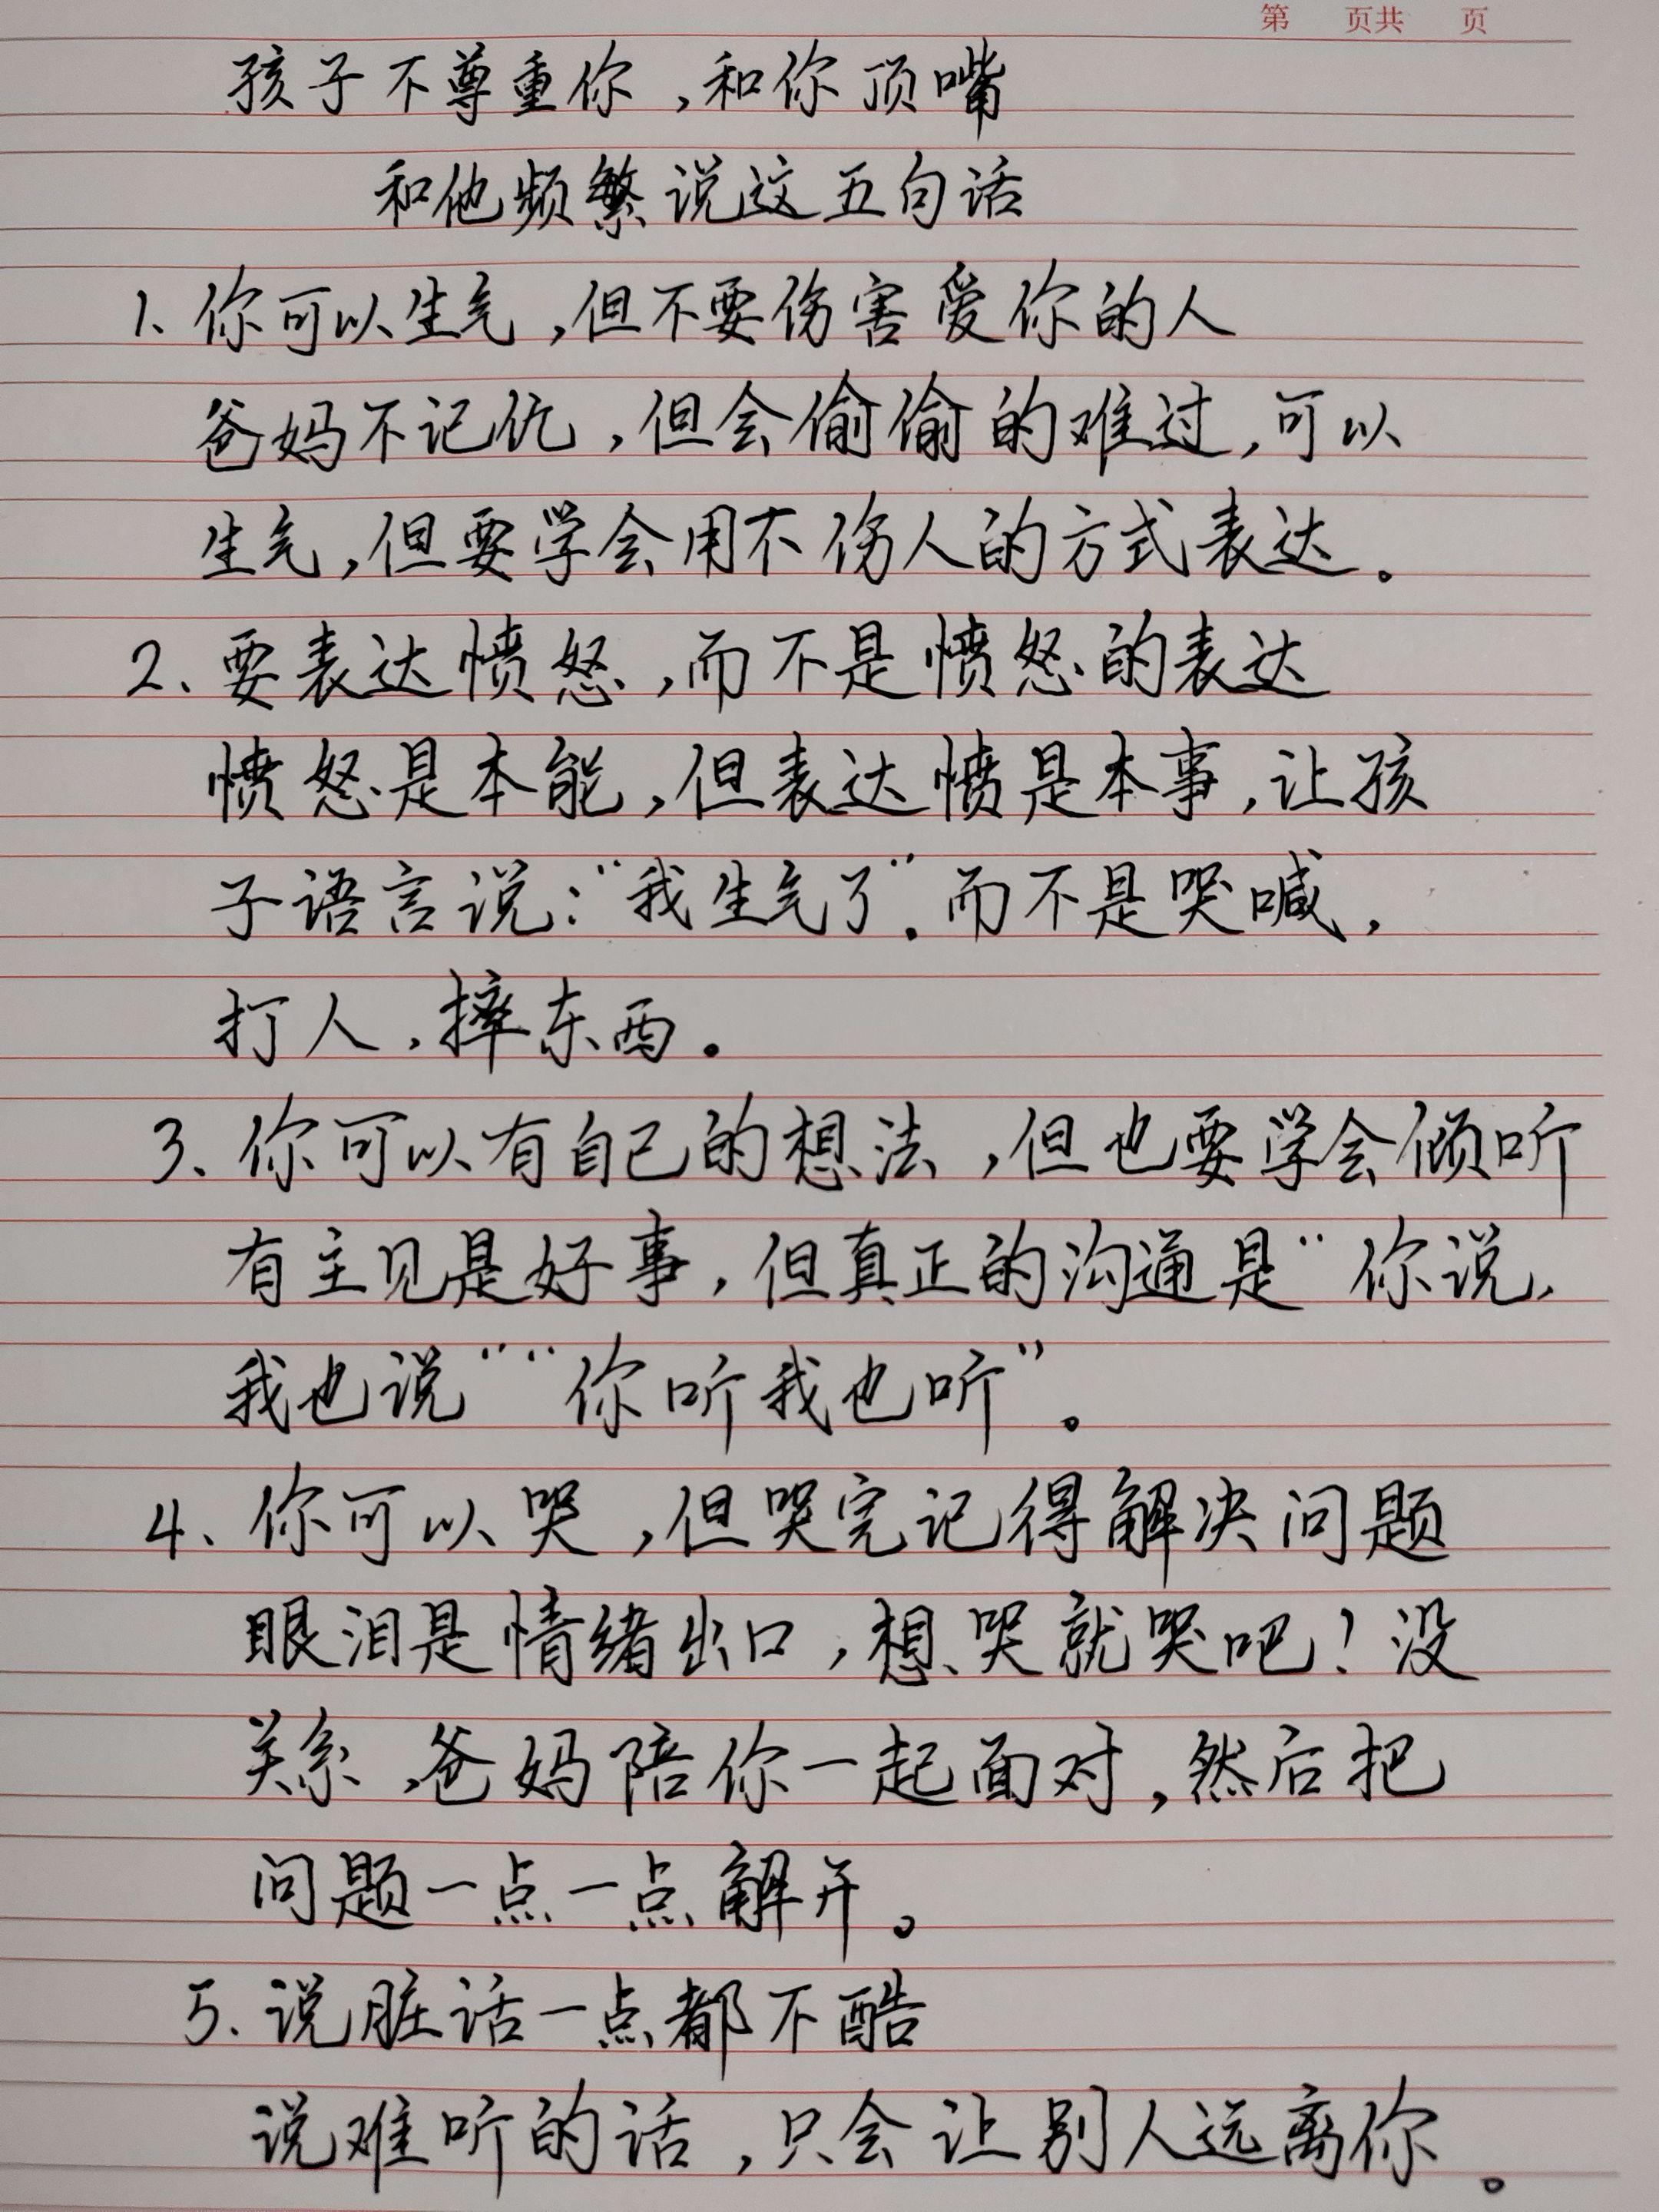 第 页共 页
孩子不尊重你,和你顶嘴
和他频繁说这五句话
1、你可以生气,但不要伤害爱你的人
爸妈不记仇,但会偷偷的难过,可以
生气,但要学会用不伤人的方式表达。
2、要表达愤怒,而不是愤怒的表达
愤怒是本能,但表达愤是本事,让孩
子语言说:“我生气了”.而不是哭喊,
打人,摔东西。
3、你可以有自己的想法,但也要学会倾听
有主见是好事,但真正的沟通是“你说,
我也说”“你听我也听”。
4、你可以哭,但哭完记得解决问题
眼泪是情绪出口,想哭就哭吧!没
关系,爸妈陪你一起面对,然后把
问题一点一点解开。
5.说脏话一点都不酷
说难听的话,只会让别人远离你。